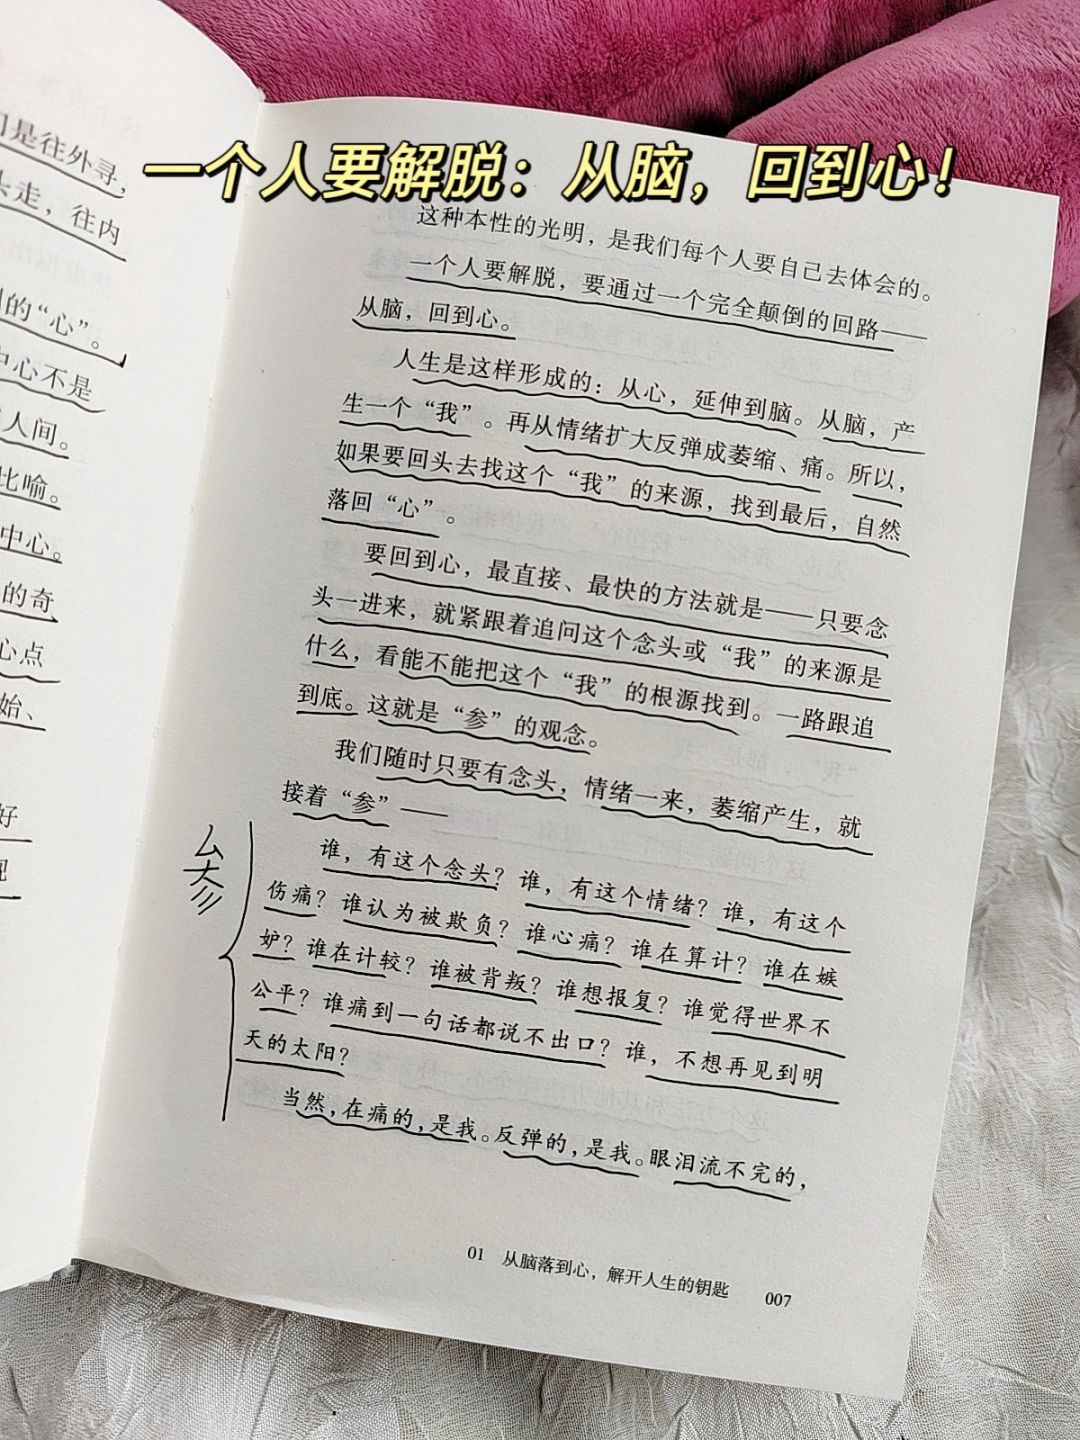 一个人要解脱：从脑，回到心！
是往外寻，
走，往内
的“心”。
中心不是
人间。
比喻。
中心。
的奇
心点
始、
好
这种本性的光明，是我们每个人要自己去体会的。
一个人要解脱，要通过一个完全颠倒的回路——
从脑，回到心。
人生是这样形成的：从心，延伸到脑。从脑，产
生一个“我”。再从情绪扩大反弹成萎缩、痛。所以，
如果要回头去找这个“我”的来源，找到最后，自然
落回“心”。
要回到心，最直接、最快的方法就是——只要念
头一进来，就紧跟着追问这个念头或“我”的来源是
什么，看能不能把这个“我”的根源找到。一路跟追
到底。这就是“参”的观念。
我们随时只要有念头，情绪一来，萎缩产生，就
接着“参”——
参
谁，有这个念头？谁，有这个情绪？谁，有这个
伤痛？谁认为被欺负？谁心痛？谁在算计？谁在嫉
妒？谁在计较？谁被背叛？谁想报复？谁觉得世界不
公平？谁痛到一句话都说不出口？谁，不想再见到明
天的太阳？
当然，在痛的，是我。反弹的，是我。眼泪流不完的，
01 从脑落到心，解开人生的钥匙 007